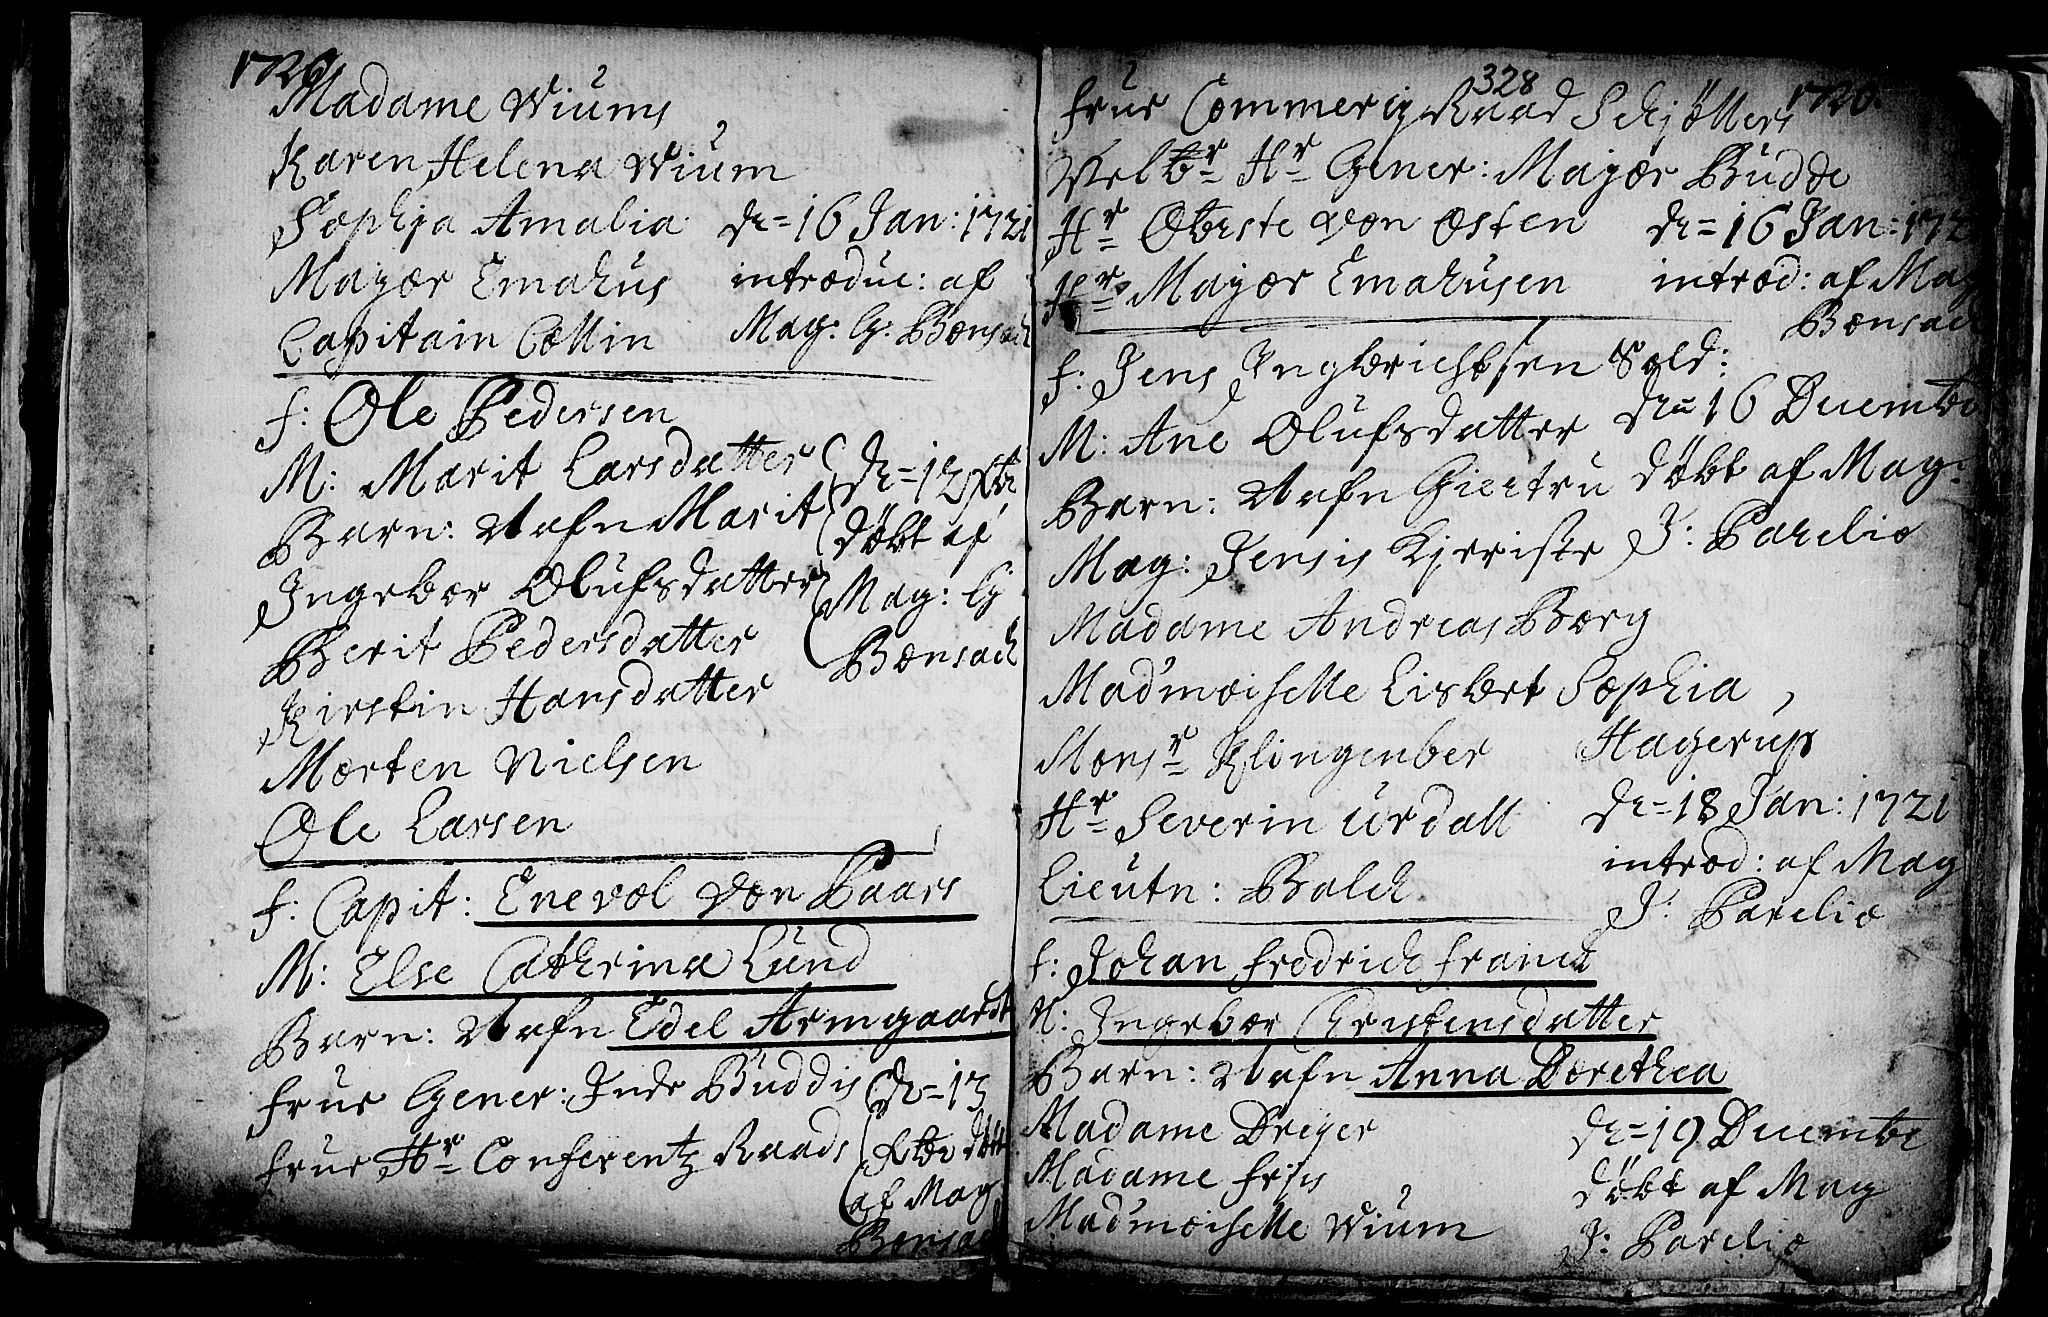 1720
Madame Wiums
Karen Helena Wium
Sophja Amalia
Major Emahus
Capitain Collin
dn= 16 Jan: 1721
introduc: af
Mag: G: Bonsach
f: Ole Pedersen
M: Marit Larsdatter
Barn: Nafn Marit
Ingebor Olufsdatter
Berit Pedersdatter
Kirstin Hansdatter
Morten Nielsen
Ole Larsen
dn= 13 Xbr
døbt af
Mag: G
Bonsach
f: Capit: Enevol von Paars
M: Else Catherina Lund
Barn: Nafn Edel Armgaardt
frue Gener: Inde Buddis
frue Hr Conferentz Raads
dn= 13
Xbr døbt
af Mag
Bonsach
328
1720.
frue Commercig Raad Schjøllers
Velbr Hr Gener: Major Budde
Hr Obriste von Osten
Hr Major Emahusen
dn= 16 Jan: 172
introd: af Mag
Bonsach
f: Jens Ingbrichtsen Sold:
M: Ane Olufsdatter
Barn: Nafn Giertru
Mag: Jensis Kjeriste
Madame Andreas Borg
Mad'moiselle Lisbet Sophia
Hagerups
Monsr Klingenber
Hr Severin Urdall
Lieutn: Balch
dn= 16 Decembr
døbt af Mag:
J: Parelio
dn= 18 Jan: 1721
introd: af Mag
J: Parelio
f: Johan fredrich franck
M: Ingebor Christensdatter
Barn: Nafn Anna Dorethea
Madame Dreyer
Madame friis
Mad'moiselle Wium
dn= 19 Decembr
døbt af Mag
J: Parelio